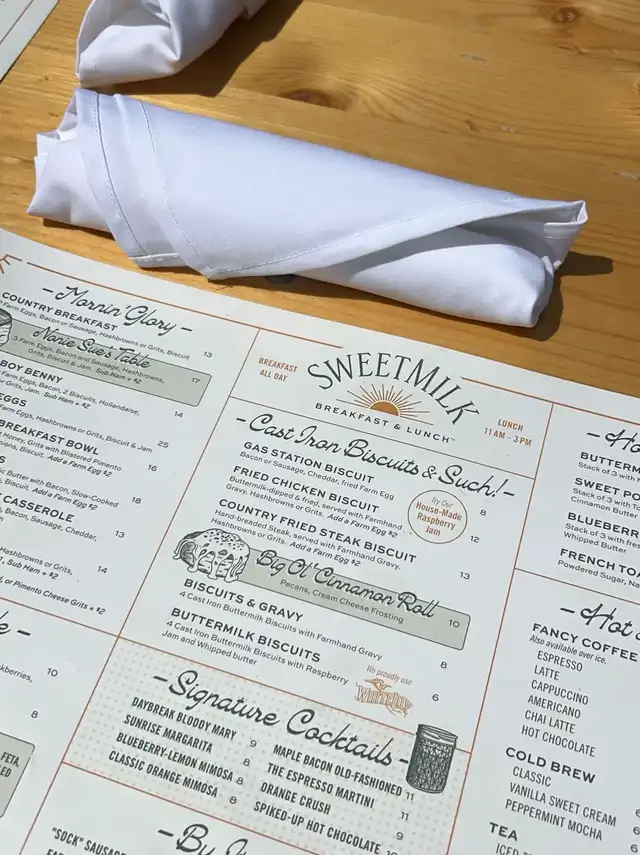 - Mornin' Glory -
COUNTRY BREAKFAST
Farm Eggs, Bacon or Sausage, Hashbrowns or Grits, Biscuit 13
Nonie Sue's Table
3 Farm Eggs, Bacon and Sausage, Hashbrowns,
Grits, Biscuit & Jam. Sub Ham + $2 17
BOY BENNY
Farm Eggs, Bacon, 2 Biscuits, Hollandaise,
or Grits, Jam. Sub Ham + $2 14
EGGS
Farm Eggs, Hashbrowns or Grits, Biscuit & Jam 25
BREAKFAST BOWL
Honey, Grits with Blistered Pimento
Biscuit. Add a Farm Egg $2 16
Butter with Bacon, Slow-Cooked
Biscuit. Add a Farm Egg $2 18
CASSEROLE
Bacon, Sausage, Cheddar, 13
Hashbrowns or Grits,
Sub Ham + $2 14
or Pimento Cheese Grits + $2
10
8
FETA,
BREAKFAST
ALL DAY
SWEETMILK
BREAKFAST & LUNCH
LUNCH
11 AM - 3 PM
- Cast Iron Biscuits & Such! -
GAS STATION BISCUIT
Bacon or Sausage, Cheddar, fried Farm Egg 8
FRIED CHICKEN BISCUIT
Buttermilk-dipped & fried, served with Farmhand
Gravy, Hashbrowns or Grits. Add a Farm Egg $2 12
Try Our
House-Made
Raspberry
Jam
COUNTRY FRIED STEAK BISCUIT
Hand-breaded Steak, served with Farmhand Gravy,
Hashbrowns or Grits. Add a Farm Egg $2 13
Big Ol' Cinnamon Roll
Pecans, Cream Cheese Frosting 10
BISCUITS & GRAVY
4 Cast Iron Buttermilk Biscuits with Farmhand Gravy 8
BUTTERMILK BISCUITS
4 Cast Iron Buttermilk Biscuits with Raspberry
Jam and Whipped butter 6
We proudly use
WHITE LILY
- Signature Cocktails -
DAYBREAK BLOODY MARY 9
SUNRISE MARGARITA 8
BLUEBERRY-LEMON MIMOSA 8
CLASSIC ORANGE MIMOSA 8
MAPLE BACON OLD-FASHIONED 11
THE ESPRESSO MARTINI 11
ORANGE CRUSH 9
SPIKED-UP HOT CHOCOLATE 10
- By
"SOCK" SAUSAGE
BUTTERM
Stack of 3 with
SWEET PO
Stack of 3 with
Cinnamon Butter
BLUEBERR
Stack of 3 with
Whipped Butter
FRENCH TOA
Powdered Sugar,
- Hot
FANCY COFFEE
Also available over ice.
ESPRESSO
LATTE
CAPPUCCINO
AMERICANO
CHAI LATTE
HOT CHOCOLATE
COLD BREW
CLASSIC
VANILLA SWEET CREAM
PEPPERMINT MOCHA
TEA